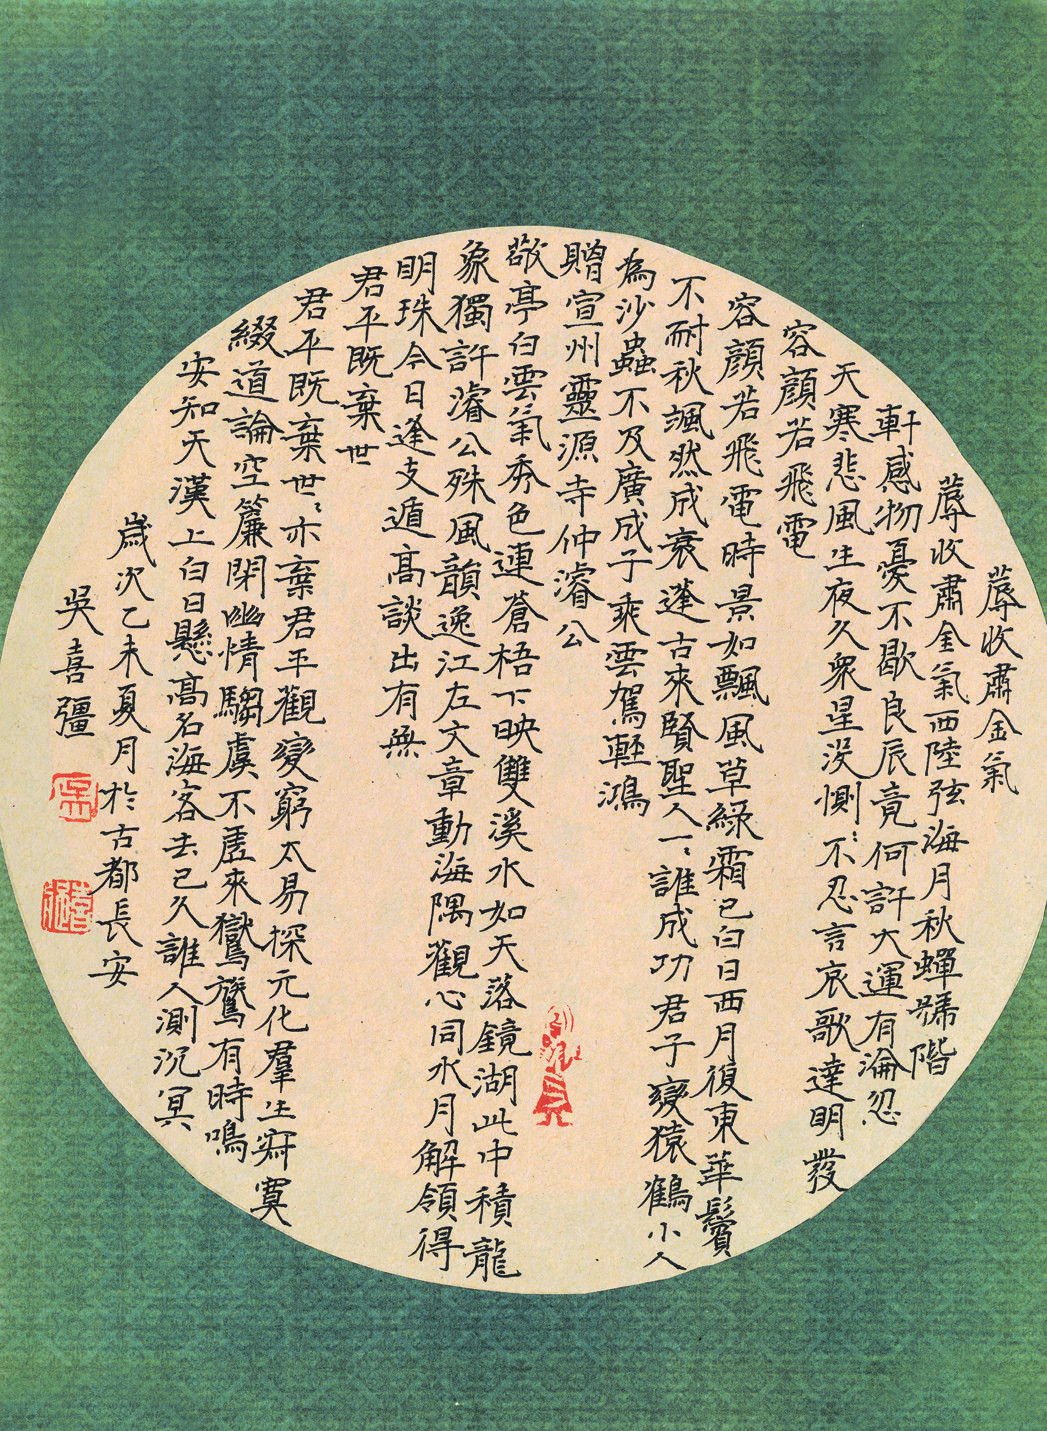 蓐收肅金氣
蓐收肅金氣西陸弦海月秋蟬號階
軒感物憂不歇良辰竟何許大運有淪忽
天寒悲風生夜久衆星没惻〻不忍言哀歌達明發
容顏若飛電
容顏若飛電時景如飄風草綠霜已白日西月復東華鬢
不耐秋颯然成衰蓬古來賢聖人一〻誰成功君子變猿鶴小人
為沙蟲不及廣成子乘雲駕輕鴻
贈宣州靈源寺仲濬公
敬亭白雲氣秀色連蒼梧下映雙溪水如天落鏡湖此中積龍
象獨許濬公殊風韻逸江左文章動海隅觀心同水月解領得
明珠今日逢支遁高談出有無
君平既棄世
君平既棄世〻亦棄君平觀變窮太易探元化羣生寂寞
綴道論空簾閉幽情騶虞不虛來鸑鷟有時鳴
安知天漢上白日懸高名海客去已久誰人測沉冥
歲次乙未夏月於古都長安
吳喜彊